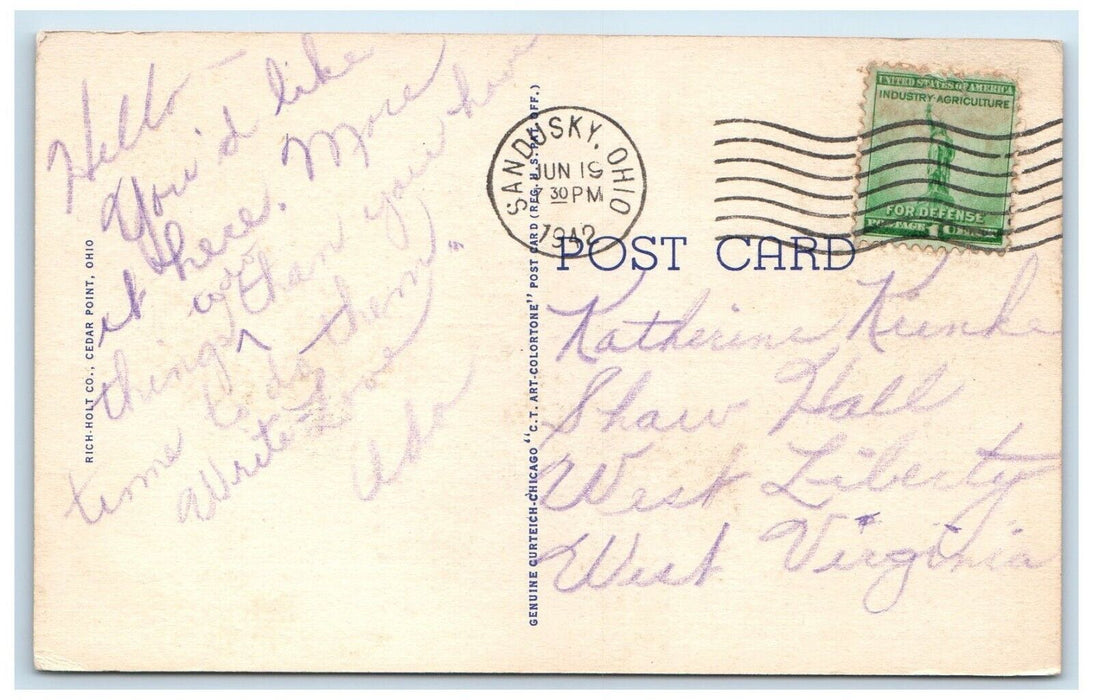 Hello —
You'd like
it here. More
things than you have
time to do them"
Write - Love
Ada
RICH-HOLT CO., CEDAR POINT, OHIO
GENUINE CURTEICH-CHICAGO "C.T. ART-COLORTONE" POST CARD (REG. U.S. PAT. OFF.)
SANDUSKY, OHIO
JUN 19
30 PM
1942
UNITED STATES OF AMERICA
INDUSTRY·AGRICULTURE
FOR DEFENSE
POSTAGE 1 CENT
POST CARD
Katherine
Shaw Hall
West Liberty
West Virginia